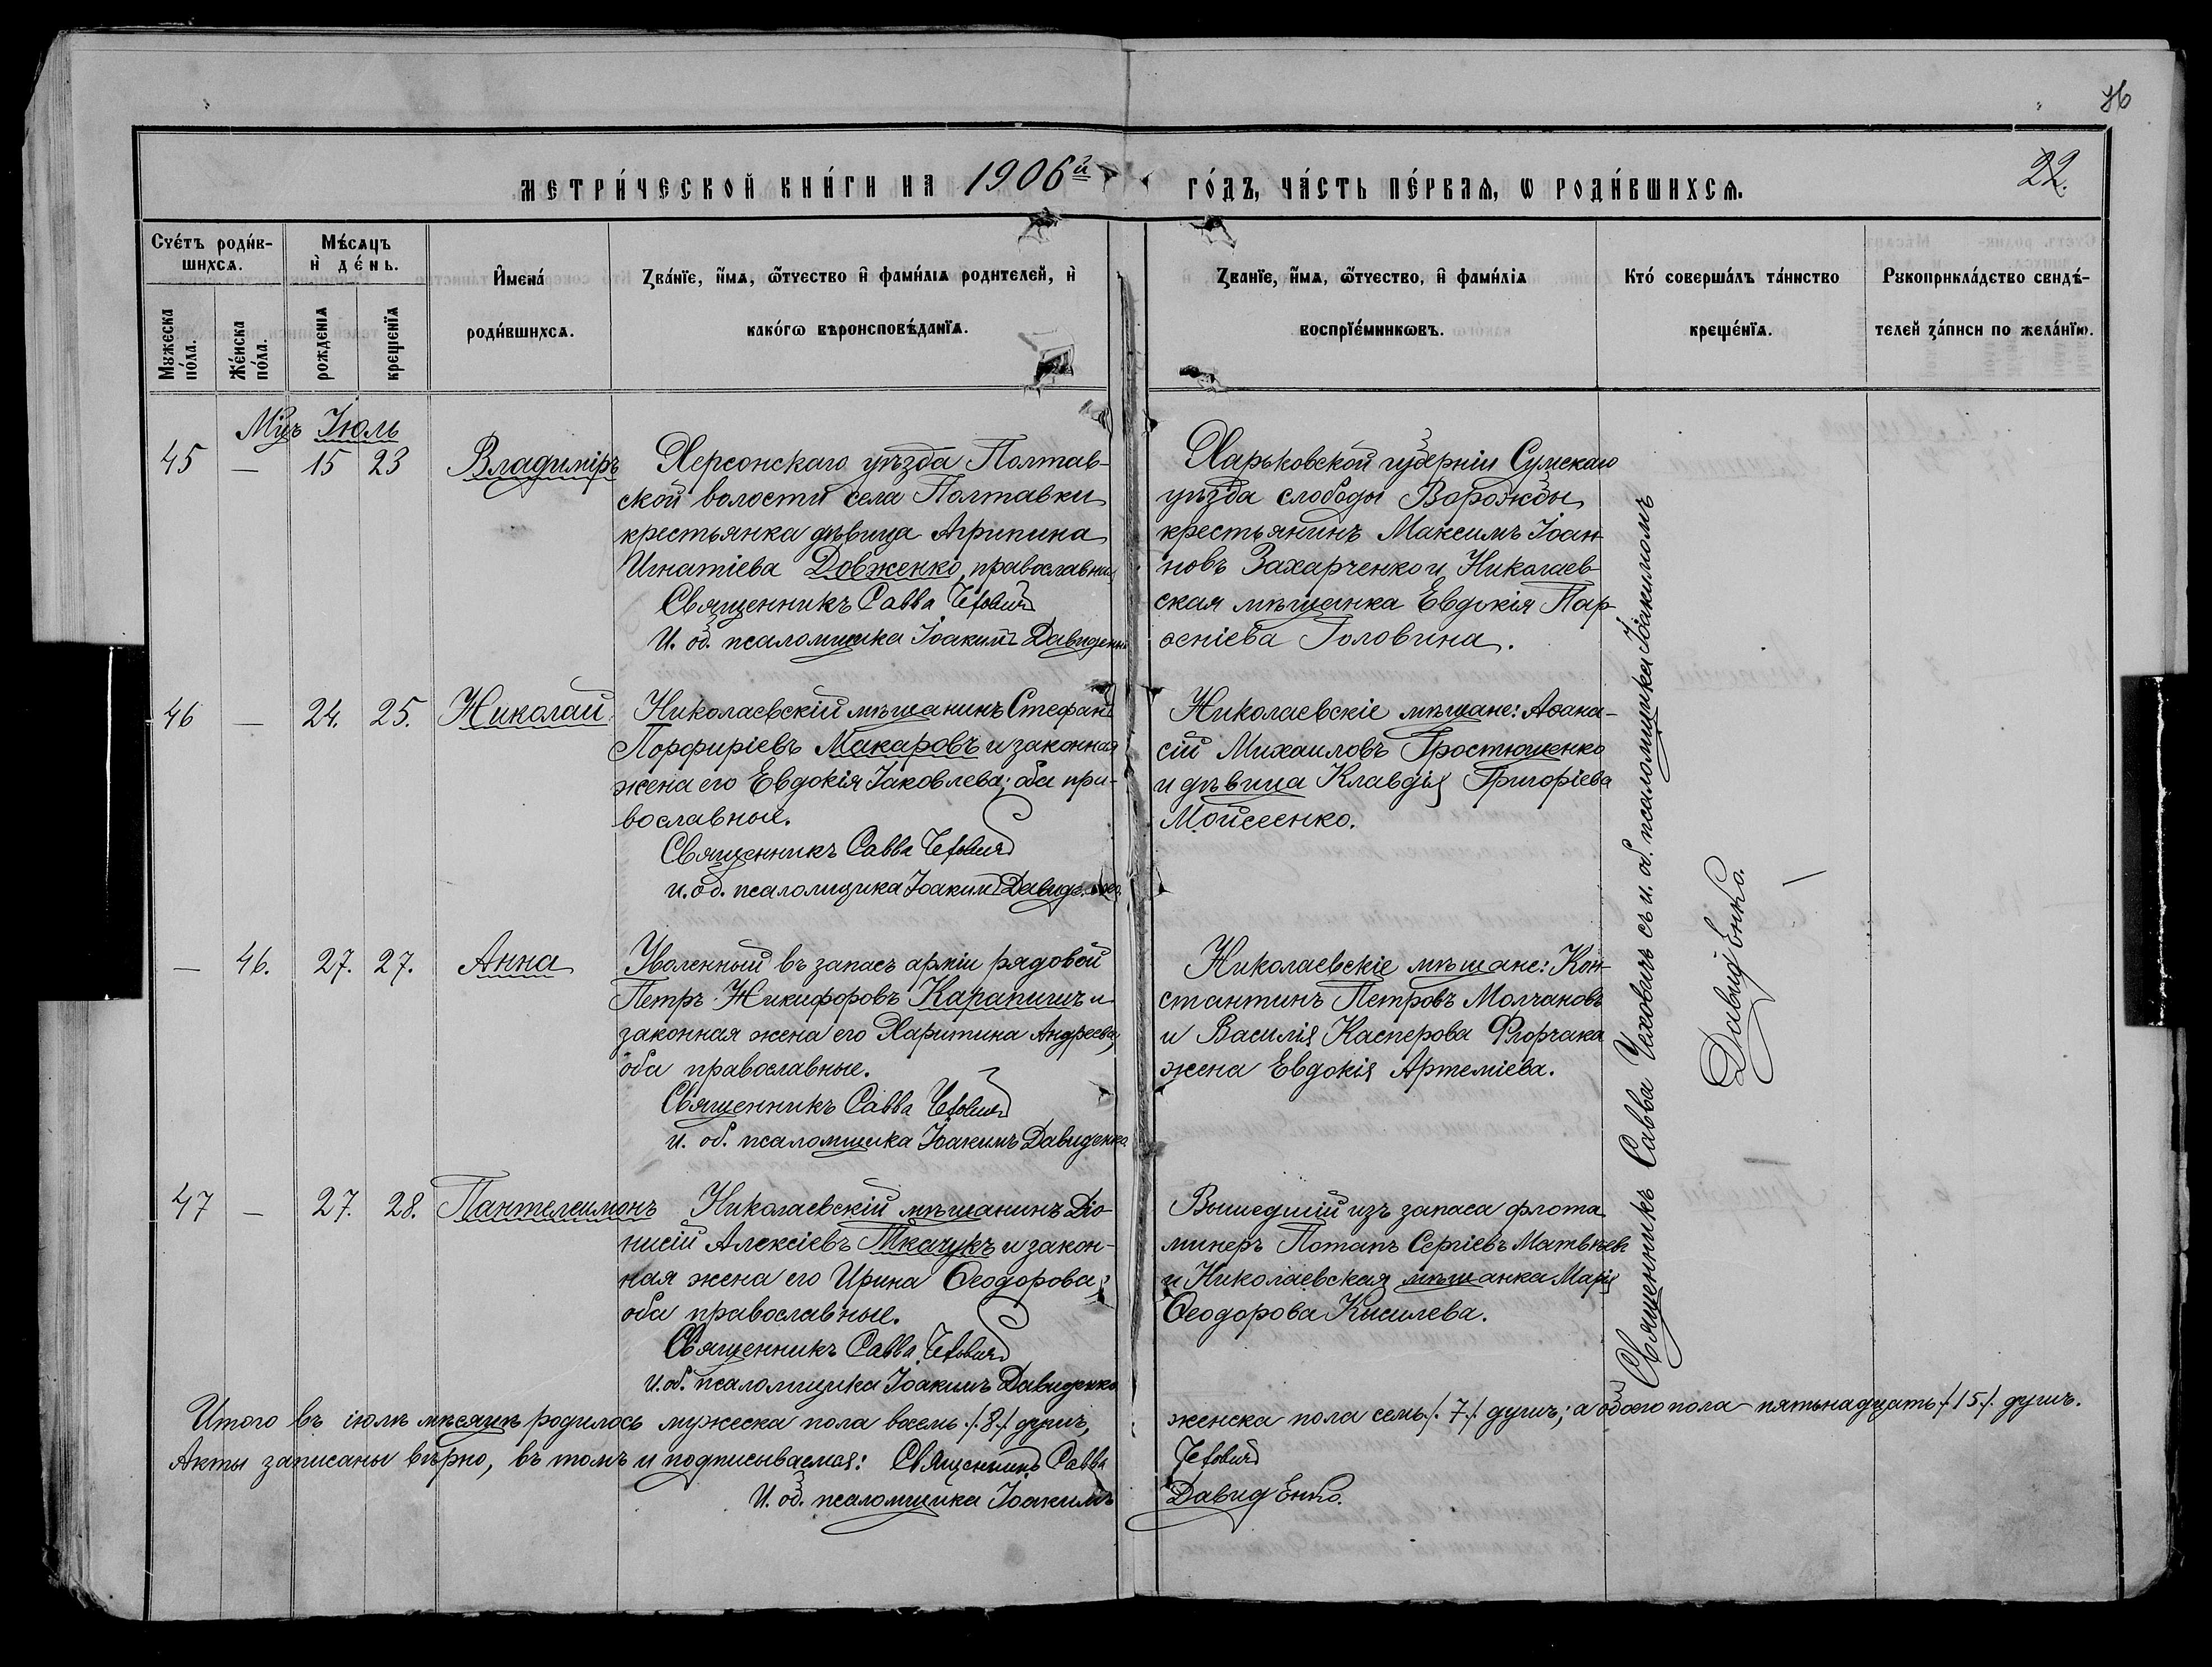 86
22.
МЕТРИ́ЧЕСКОЙ КНИ́ГИ НА 1906й ГО́ДЪ, ЧА́СТЬ ПЕ́РВАѦ, Ѡ РОДИ́ВШИХСѦ.
Счéтъ роди́в-
шихсѧ.
Мѣ́сѧцъ
и҆ де́нь.
И҆мена́
роди́вшихсѧ.
Зва́нїе, и҆́мѧ, ѻ҆́тчество и҆ фами́лїѧ родителей, и҆
како́гѡ вѣроисповѣ́данїѧ.
Зва́нїе, и҆́мѧ, ѻ҆́тчество, и҆ фами́лїѧ
воспрїе́мникѡвъ.
Кто́ соверша́лъ та́инство
креще́нїѧ.
Рꙋкоприкла́дство свидѣ́-
телей за́писи по жела́нїю.
Мꙋжеска
по́ла.
Же́нска
по́ла.
рожденїѧ
крещенїѧ
Мцъ Іюль
45 — 15 23 Владиміръ
Херсонскаго уѣзда Полтав-
ской волости села Полтавки
крестьянка дѣвица Агрипина
Игнатіева Довженко, православная
Священникъ Савва Чеховичъ
И. об. псаломщика Іоакимъ Давиденко
Харьковской губерніи Сумскаго
уѣзда слободы Ворожбы
крестьянинъ Максимъ Іоан-
новъ Захарченко и Николаев-
ская мѣщанка Евдокія Пар-
ѳеніева Головина.
46 — 24. 25. Николай
Николаевскій мѣщанинъ Стефанъ
Порфиріевъ Макаровъ и законная
жена его Евдокія Іаковлева; оба пра-
вославные.
Священникъ Савва Чеховичъ
и. об. псаломщика Іоакимъ Давиденко
Николаевскіе мѣщане: Аѳана-
сій Михаиловъ Простюшенко
и дѣвица Клавдія Григоріева
Мойсеенко.
— 46. 27. 27. Анна
Уволенный въ запасъ арміи рядовой
Петръ Никифоровъ Карапишъ и
законная жена его Харитина Андреева,
оба православные.
Священникъ Савва Чеховичъ
и. об. псаломщика Іоакимъ Давиденко
Николаевскіе мѣщане: Кон-
стантинъ Петровъ Молчановъ
и Василія Касперова Флорчака
жена Евдокія Артеміева.
47 — 27. 28. Пантелеимонъ
Николаевскій мѣщанинъ Діо-
нисій Алексіевъ Ткачукъ и закон-
ная жена его Ирина Ѳеодорова;
оба православные.
Священникъ Савва Чеховичъ
И. об. псаломщика Іоакимъ Давиденко
Вышедшій изъ запаса флота
минеръ Потапъ Сергіевъ Матвѣевъ
и Николаевская мѣщанка Марія
Ѳеодорова Киселева.
Священникъ Савва Чеховичъ съ и. об. псаломщика Іоакимомъ
Давиденко.
Итого въ іюлѣ мѣсяцѣ родилось мужеска пола восемь /.8./ душъ, женска пола семь /.7./ душъ; а обоего пола пятьнадцать /.15./ душъ.
Акты записаны вѣрно, въ томъ и подписываемся: Священникъ Савва Чеховичъ
И. об. псаломщика Іоакимъ Давиденко.